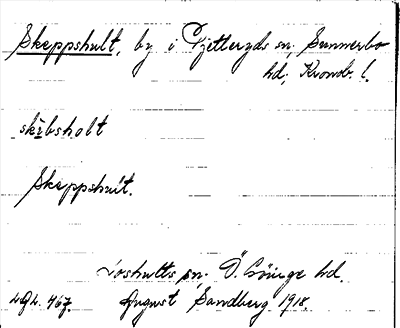 Skeppshult, by i Pjetteryds sn, Sunnerbo
hd, Kronob. l.
skĕbsholt
Skeppshult.
Loshults sn. Ö. Göinge hd.
August Sandberg 1918.